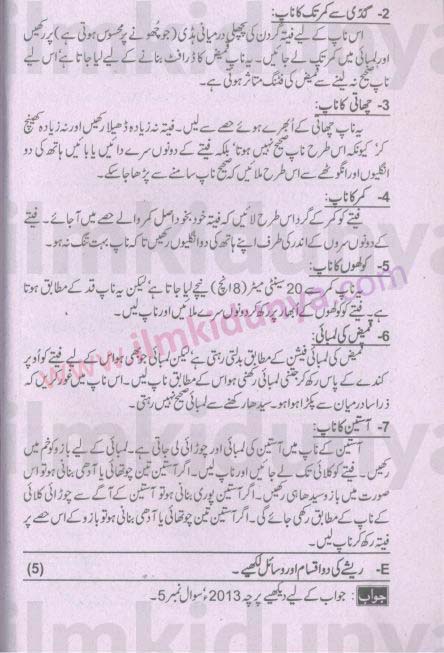 2- گدّی سے کمر تک کا ناپ:
اس ناپ کے لیے فیتہ گردن کی پچھلی درمیانی ہڈی (جو چھونے پر محسوس ہوتی ہے) پر رکھیں
اور لمبائی میں کمر تک کا ناپ لیں۔ یہ ناپ قمیض کا ڈرافٹ بنانے کے لیے لیا جاتا ہے' اس لیے
ناپ صحیح نہ لینے سے قمیض کی فٹنگ متاثر ہوتی ہے۔
3- چھاتی کا ناپ:
یہ ناپ چھاتی کے اُبھرے ہوئے حصے سے لیں۔ فیتہ نہ زیادہ ڈھیلا رکھیں اور نہ زیادہ کھینچ
کر' کیونکہ اس طرح ناپ صحیح نہیں ہوتا' بلکہ فیتے کے دونوں سرے دائیں یا بائیں ہاتھ کی دو
انگلیوں اور انگوٹھے سے اس طرح ملائیں کہ صحیح ناپ سامنے سے پڑھا جا سکے۔
4- کمر کا ناپ:
فیتے کو کمر کے گرد اس طرح لائیں کہ فیتہ خود بخود اصل کمر والے حصے میں آ جائے۔ فیتے
کے دونوں سروں کے اندر کی طرف اپنے ہاتھ کی دو انگلیوں رکھیں تا کہ ناپ بہت تنگ نہ ہو۔
5- کولھوں کا ناپ:
یہ ناپ کمر سے 20 سینٹی میٹر (8 انچ) نیچے لیا جاتا ہے' لیکن یہ ناپ قد کے مطابق ہوتا
ہے۔ فیتے کو کولھوں کے اُبھار پر رکھ کر دونوں سرے ملائیں اور ناپ لیں۔
6- قمیض کی لمبائی:
قمیض کی لمبائی فیشن کے مطابق بدلتی رہتی ہے' لیکن لمبائی جو بھی ہو اس کے لیے فیتے کو اوپر
کندے کے پاس رکھ کر جتنی لمبائی رکھنی ہو اس کے مطابق ناپ لیں۔ اس ناپ میں غور کریں کہ
ذرا سا درمیان سے پکڑا ہوا ہو۔ سیدھا رکھنے سے لمبائی صحیح نہیں رہتی۔
7- آستین کا ناپ:
آستین کے ناپ میں آستین کی لمبائی اور چوڑائی لی جاتی ہے۔ لمبائی کے لیے بازو کو خم میں
رکھیں۔ فیتے کو کلائی تک لے جائیں اور ناپ لیں۔ اگر آستین تین چوتھائی یا آدھی بنانی ہو تو اس
صورت میں بازو سیدھا ہی رکھیں۔ اگر آستین پوری بنانی ہو تو آستین کے آگے سے چوڑائی کلائی
کے ناپ کے مطابق رکھی جائے گی۔ اگر آستین تین چوتھائی یا آدھی بنانی ہو تو بازو کے اس حصے پر
فیتہ رکھ کر ناپ لیں۔
E- ریشے کی دو اقسام اور وسائل لکھیے۔ (5)
جواب : جواب کے لیے دیکھیے پرچہ 2013ء' سوال نمبر 5۔
www.ilmkidunya.com
ilmkidunya